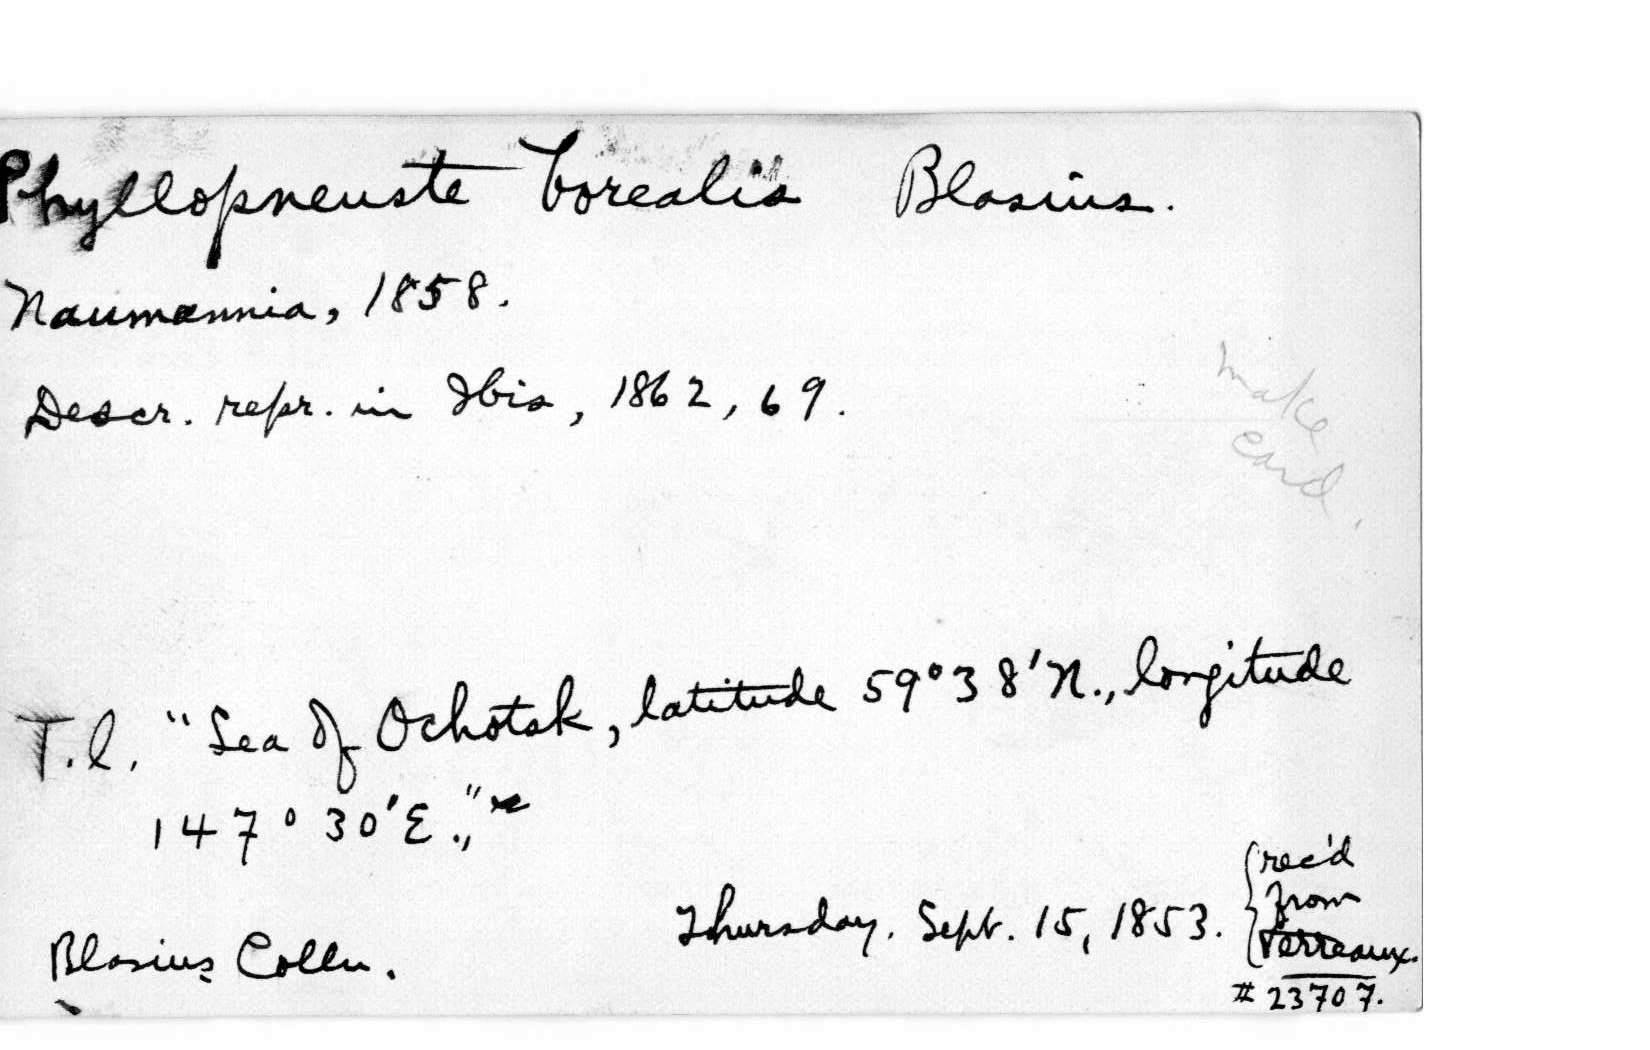 Phyllopneuste borealis Blasius.
Naumannia, 1858.
Descr. repr. in Ibis, 1862, 69.
make
card.
T.l. "Sea of Ochotsk, latitude 59°38'N., longitude
147°30'E.,"
Blasius Colln.
Thursday. Sept. 15, 1853.
rec'd
from
Verreaux.
# 23707.